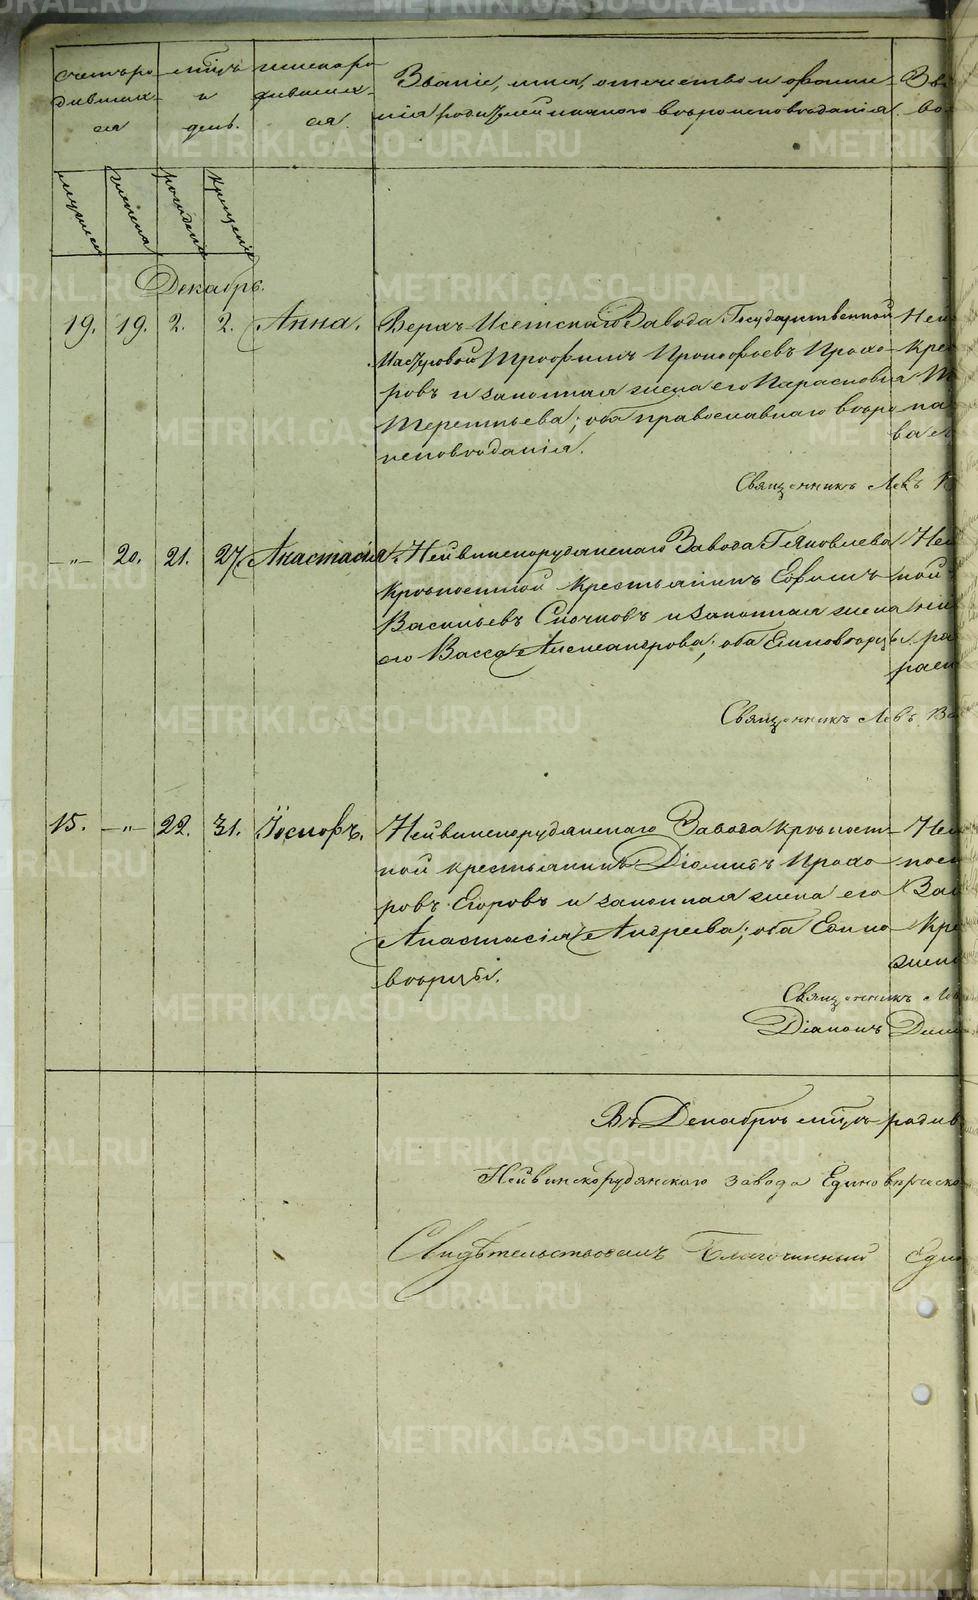 Счетъ ро-
дивших-
ся
мѣсцъ
и
день.
имена ро-
дивших-
ся
Званіе, имя, отчество и фами-
лія родителей и какого вѣроисповѣданія
Зва
вѣ
мужеска
женска
рожденія
крещенія
Декабрь.
19. 19. 2. 2. Анна. Верхъ-Исетскаго Завода Государственной
Мастеровой Трофимъ Прокофьевъ Прохо-
ровъ и законная жена его Парасковія
Терентьева; оба православнаго вѣро-
исповѣданія.
Священникъ Левъ
–„– 20. 21. 27. Анастасія. Нейвинскорудянскаго Завода Г. Яковлева
крѣпостной крестьянинъ Ефимъ
Васильевъ Сночковъ и законная жена
его Васса Александрова; оба Единовѣрцы.
Священникъ Левъ
15. –„– 22. 31. Іосифъ. Нейвинскорудянскаго Завода крѣпост-
ной крестьянинъ Діомидъ Прохо-
ровъ Егоровъ и законная жена его
Анастасія Андреева; оба Едино-
вѣрцы.
Священникъ
Діаконъ
Въ Декабрѣ мѣсцѣ родив
Нейвинскорудянскаго завода Единовѣрческо
Свидѣтельствовалъ Благочинный Един
METRIKI.GASO-URAL.RU